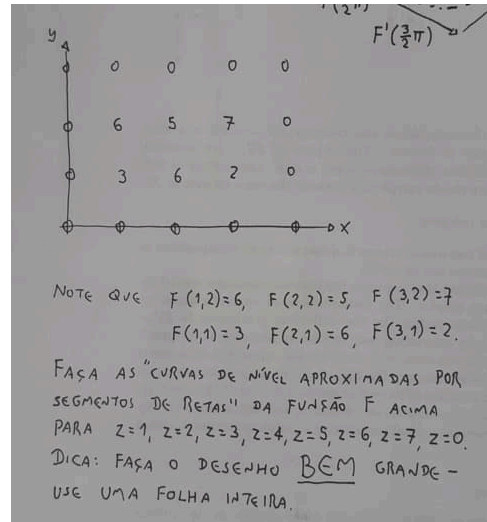 F'(3/2 π)
y
0 0 0 0 0
0 6 5 7 0
0 3 6 2 0
0 0 0 0 0 x
NOTE QUE F(1,2)=6, F(2,2)=5, F(3,2)=7
F(1,1)=3, F(2,1)=6, F(3,1)=2.
FAÇA AS "CURVAS DE NÍVEL APROXIMADAS POR
SEGMENTOS DE RETAS" DA FUNSÃO F ACIMA
PARA z=1, z=2, z=3, z=4, z=5, z=6, z=7, z=0.
DICA: FAÇA O DESENHO BEM GRANDE –
USE UMA FOLHA INTEIRA.